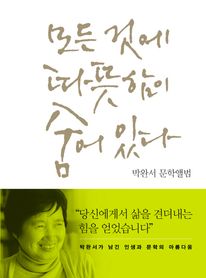 모든 것에
따뜻함이
숨어 있다
박완서 문학앨범
“당신에게서 삶을 견뎌내는
힘을 얻었습니다”
박완서가 남긴 인생과 문학의 아름다움